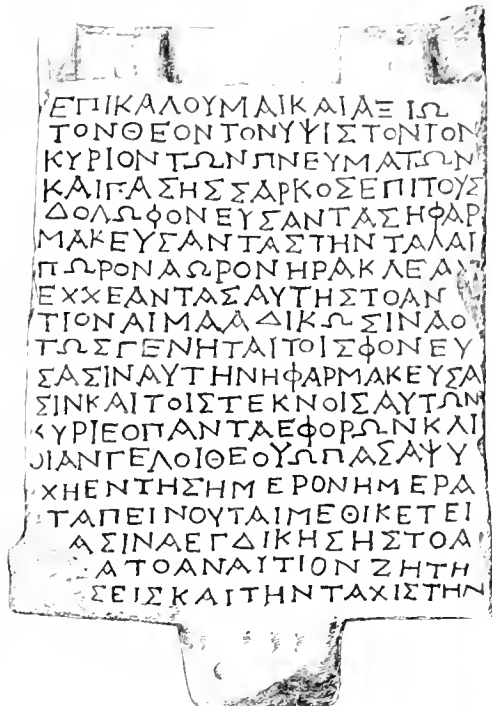 ΕΠΙΚΑΛΟΥΜΑΙΚΑΙΑΞΙΩ
ΤΟΝΘΕΟΝΤΟΝΥΨΙΣΤΟΝΤΟΝ
ΚΥΡΙΟΝΤΩΝΠΝΕΥΜΑΤΩΝ
ΚΑΙΠΑΣΗΣΣΑΡΚΟΣΕΠΙΤΟΥΣ
ΔΟΛΩΦΟΝΕΥΣΑΝΤΑΣΗΦΑΡ
ΜΑΚΕΥΣΑΝΤΑΣΤΗΝΤΑΛΑΙ
ΠΩΡΟΝΑΩΡΟΝΗΡΑΚΛΕΑΝ
ΕΧΧΕΑΝΤΑΣΑΥΤΗΣΤΟΑΝ
ΤΙΟΝΑΙΜΑΑΔΙΚΩΣΙΝΑΟ
ΤΩΣΓΕΝΗΤΑΙΤΟΙΣΦΟΝΕΥ
ΣΑΣΙΝΑΥΤΗΝΗΦΑΡΜΑΚΕΥΣΑ
ΣΙΝΚΑΙΤΟΙΣΤΕΚΝΟΙΣΑΥΤΩΝ
ΚΥΡΙΕΟΠΑΝΤΑΕΦΟΡΩΝΚΑΙ
ΟΙΑΝΓΕΛΟΙΘΕΟΥΩΠΑΣΑΨΥ
ΧΗΕΝΤΗΣΗΜΕΡΟΝΗΜΕΡΑ
ΤΑΠΕΙΝΟΥΤΑΙΜΕΘΙΚΕΤΕΙ
ΑΣΙΝΑΕΓΔΙΚΗΣΗΣΤΟΑ
ΑΤΟΑΝΑΙΤΙΟΝΖΗΤΗ
ΣΕΙΣΚΑΙΤΗΝΤΑΧΙΣΤΗΝ